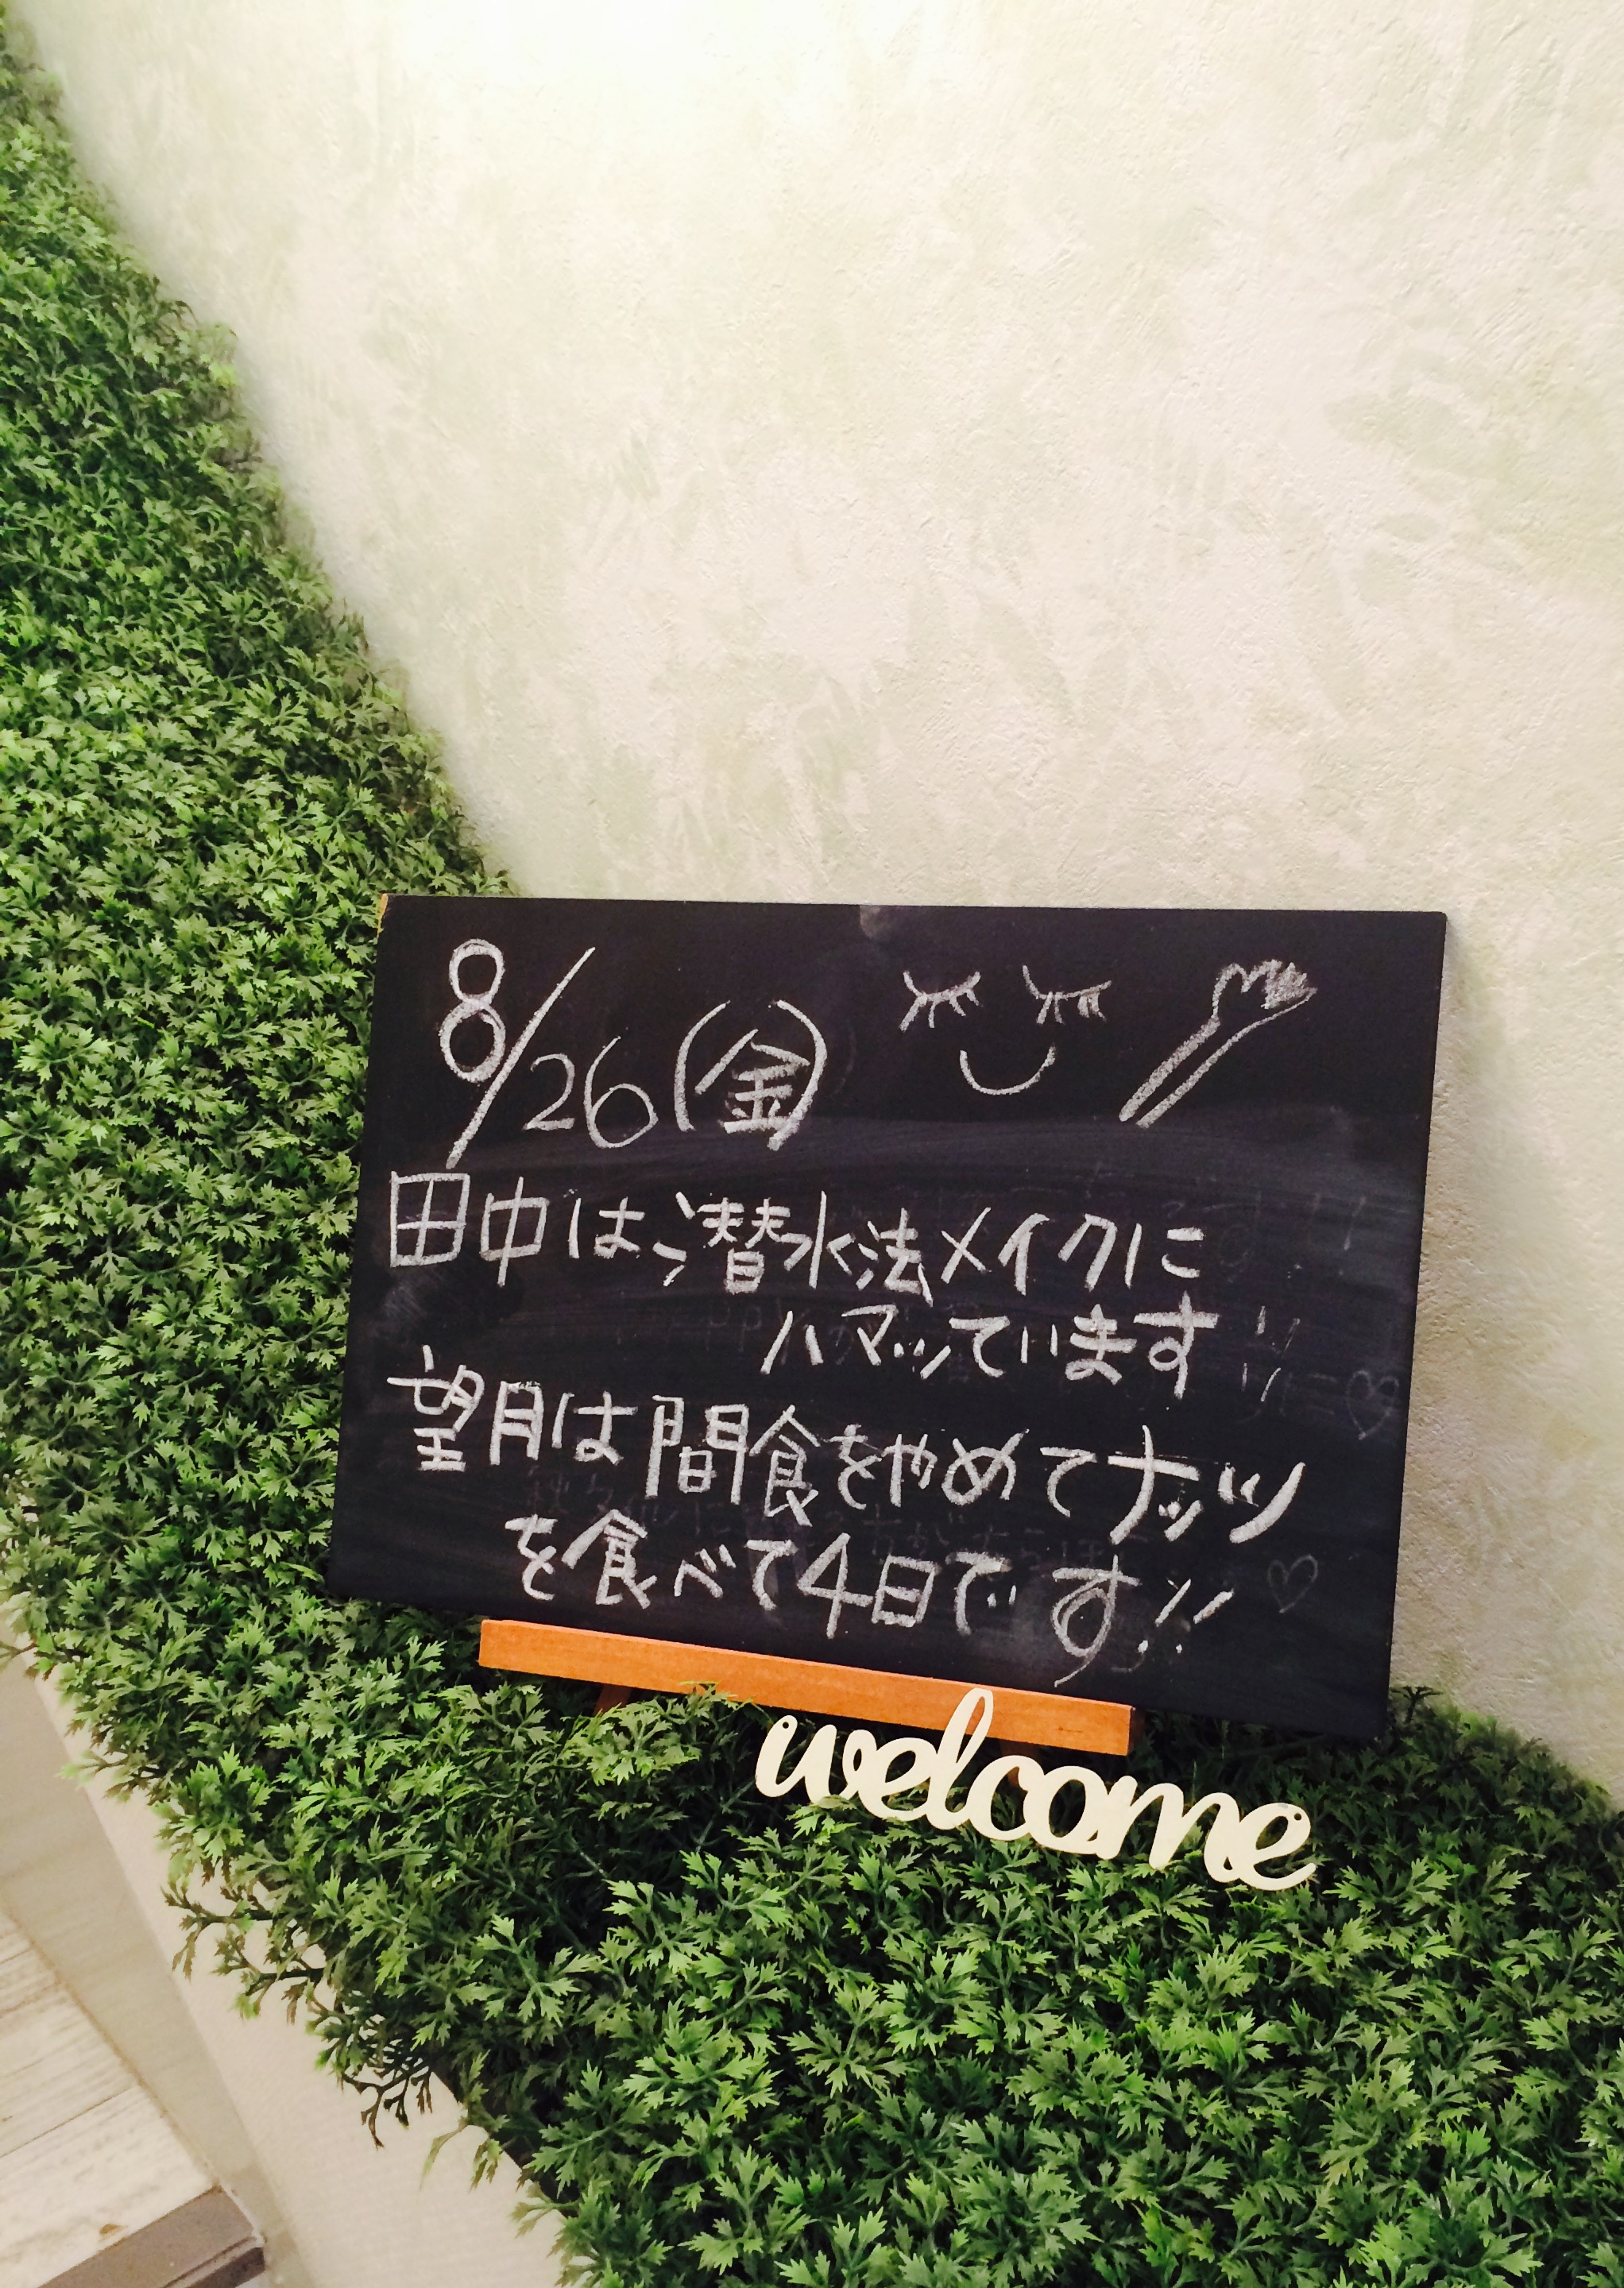 8/26(金)
田中は、潜水法メイクに
ハマッています
望月は間食をやめてナッツ
を食べて4日です!!
welcome